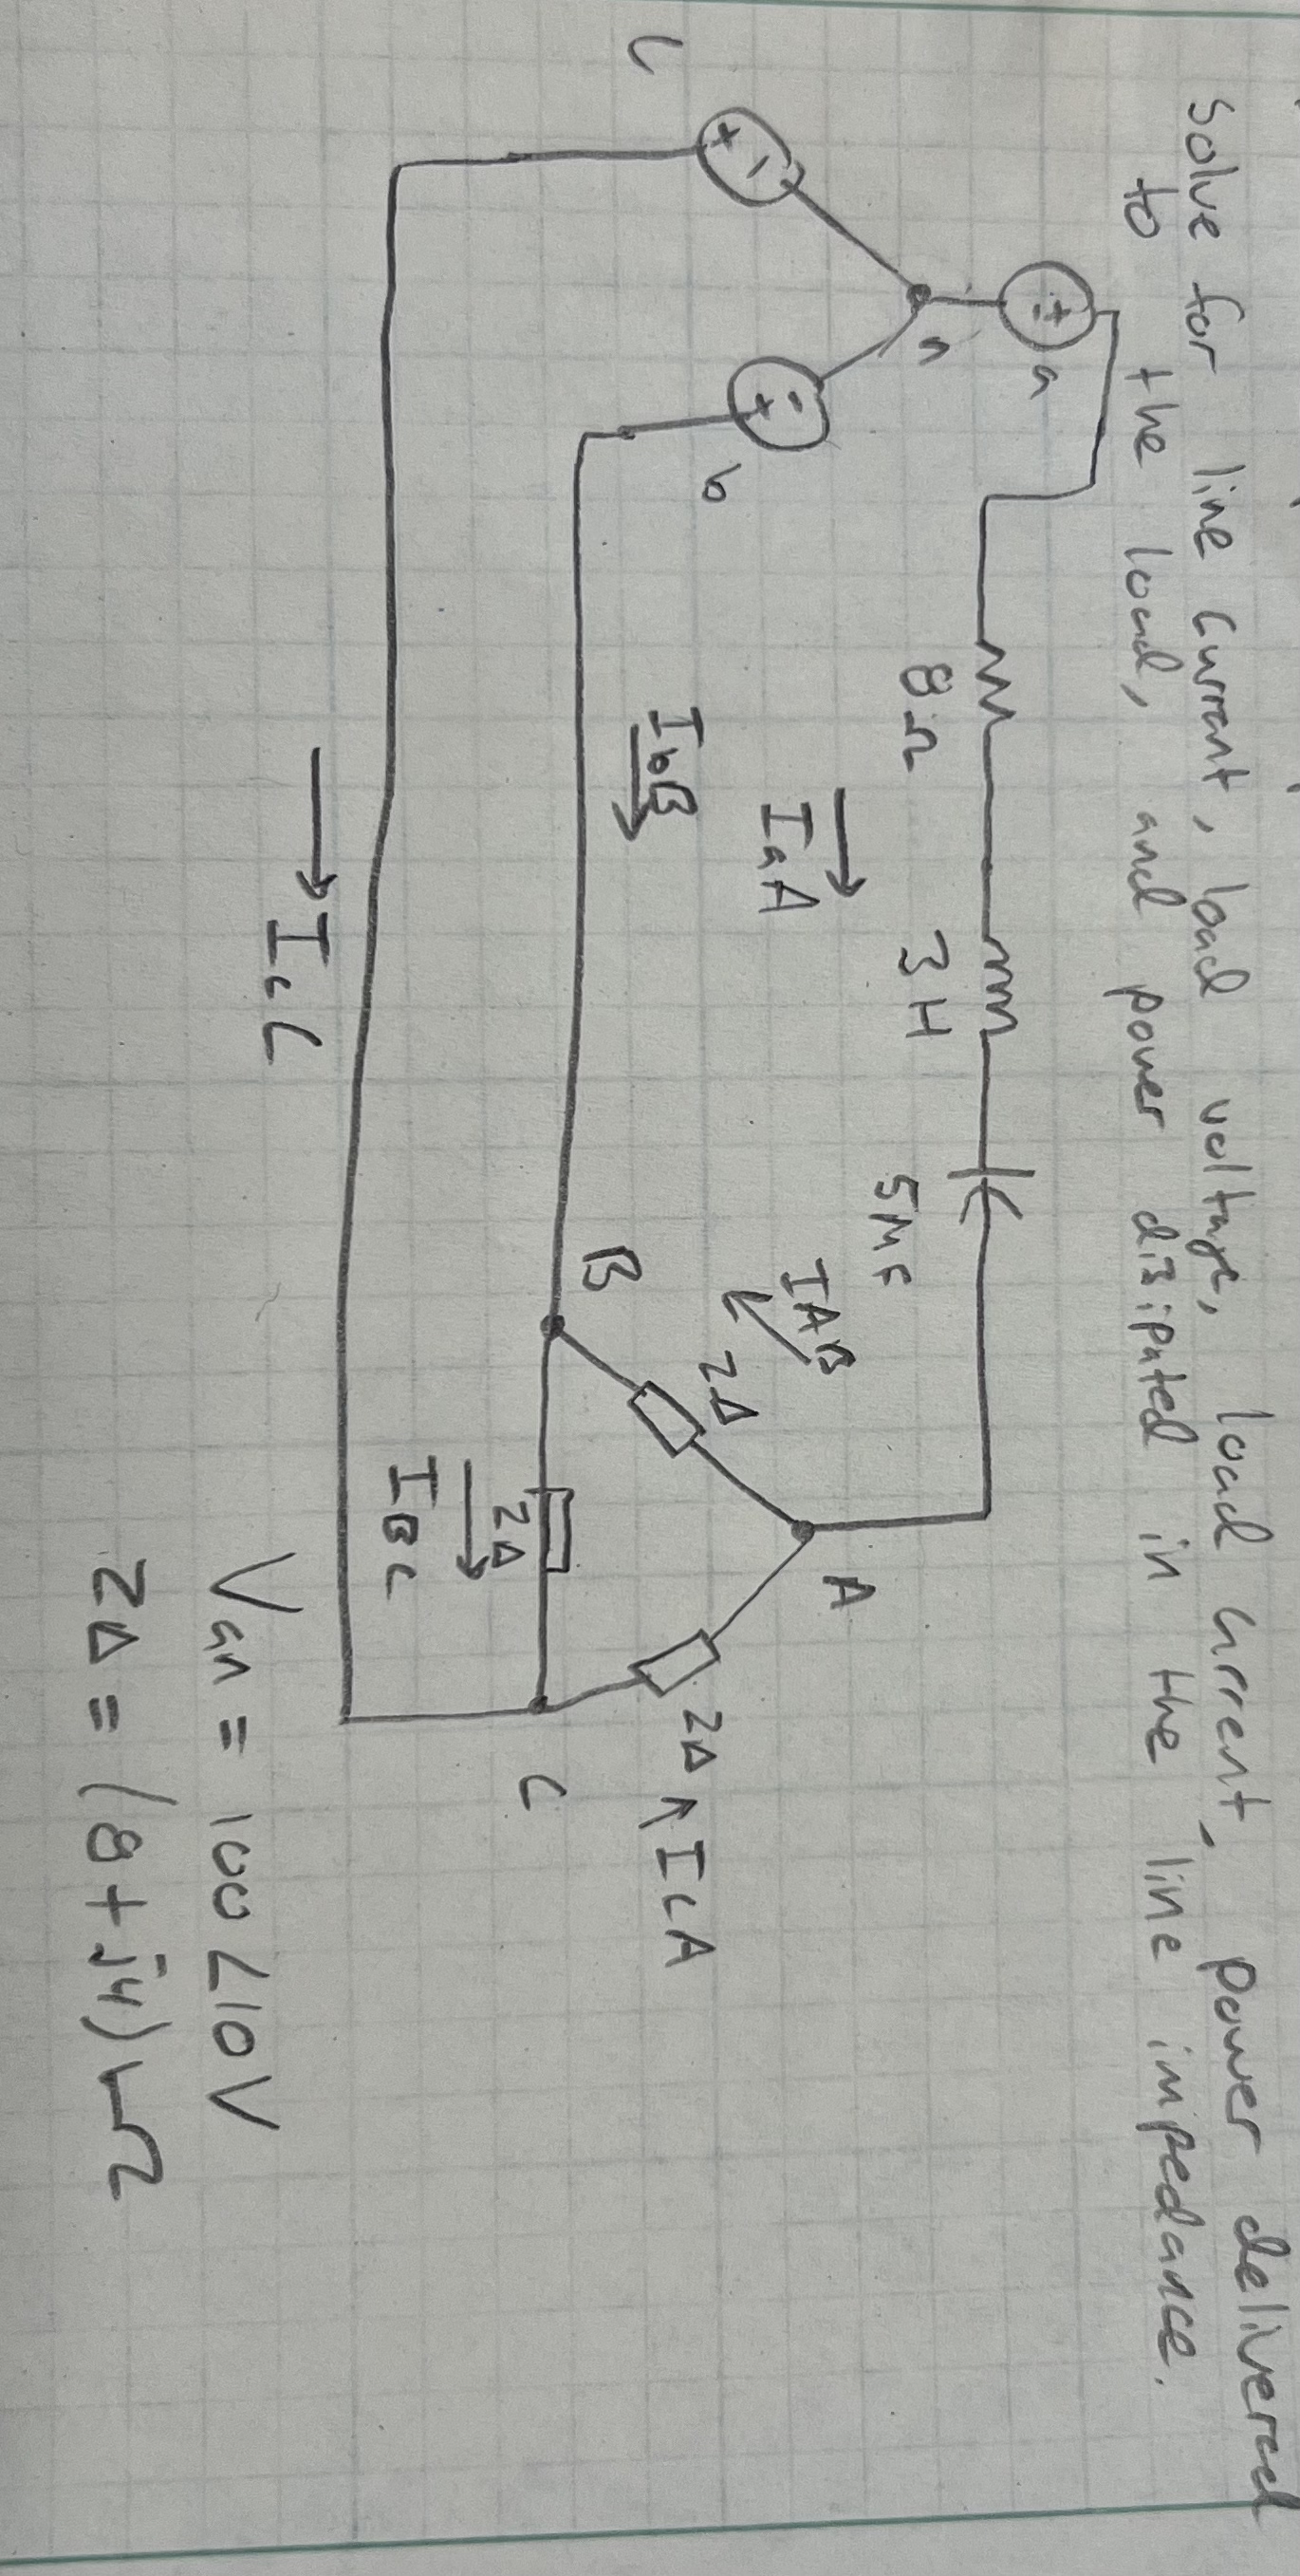 Solve for line currant, load voltage, load current, power delivered
to the load, and power disipated in the line impedance.
a
n
C
b
8Ω
3H
5MF
IaA
IbB
IcC
IAB
Z∆
B
A
Z∆
IBC
Z∆
ICA
C
Van = 100∠10V
Z∆ = (8+j4)Ω